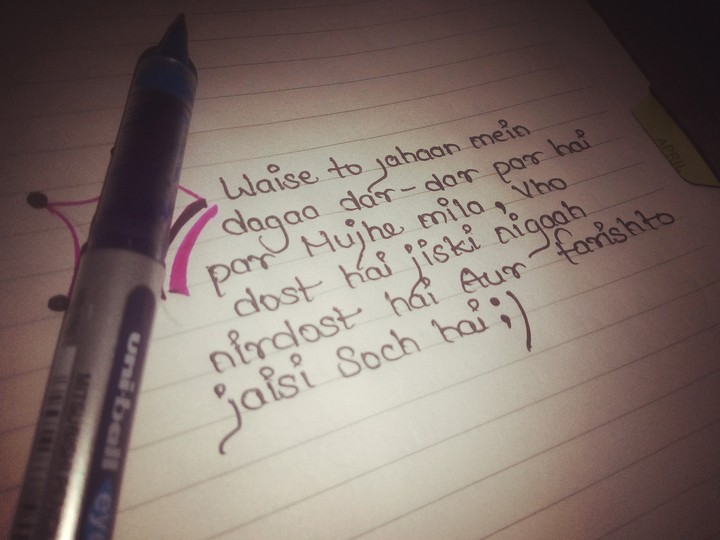 Waise to jahaan mein
dagaa dar-dar par hai
par Mujhe mila, Vho
dost hai jiski nigaah
nirdost hai Aur farishto
jaisi Soch hai ;)
APRIL
uni-ball
eye